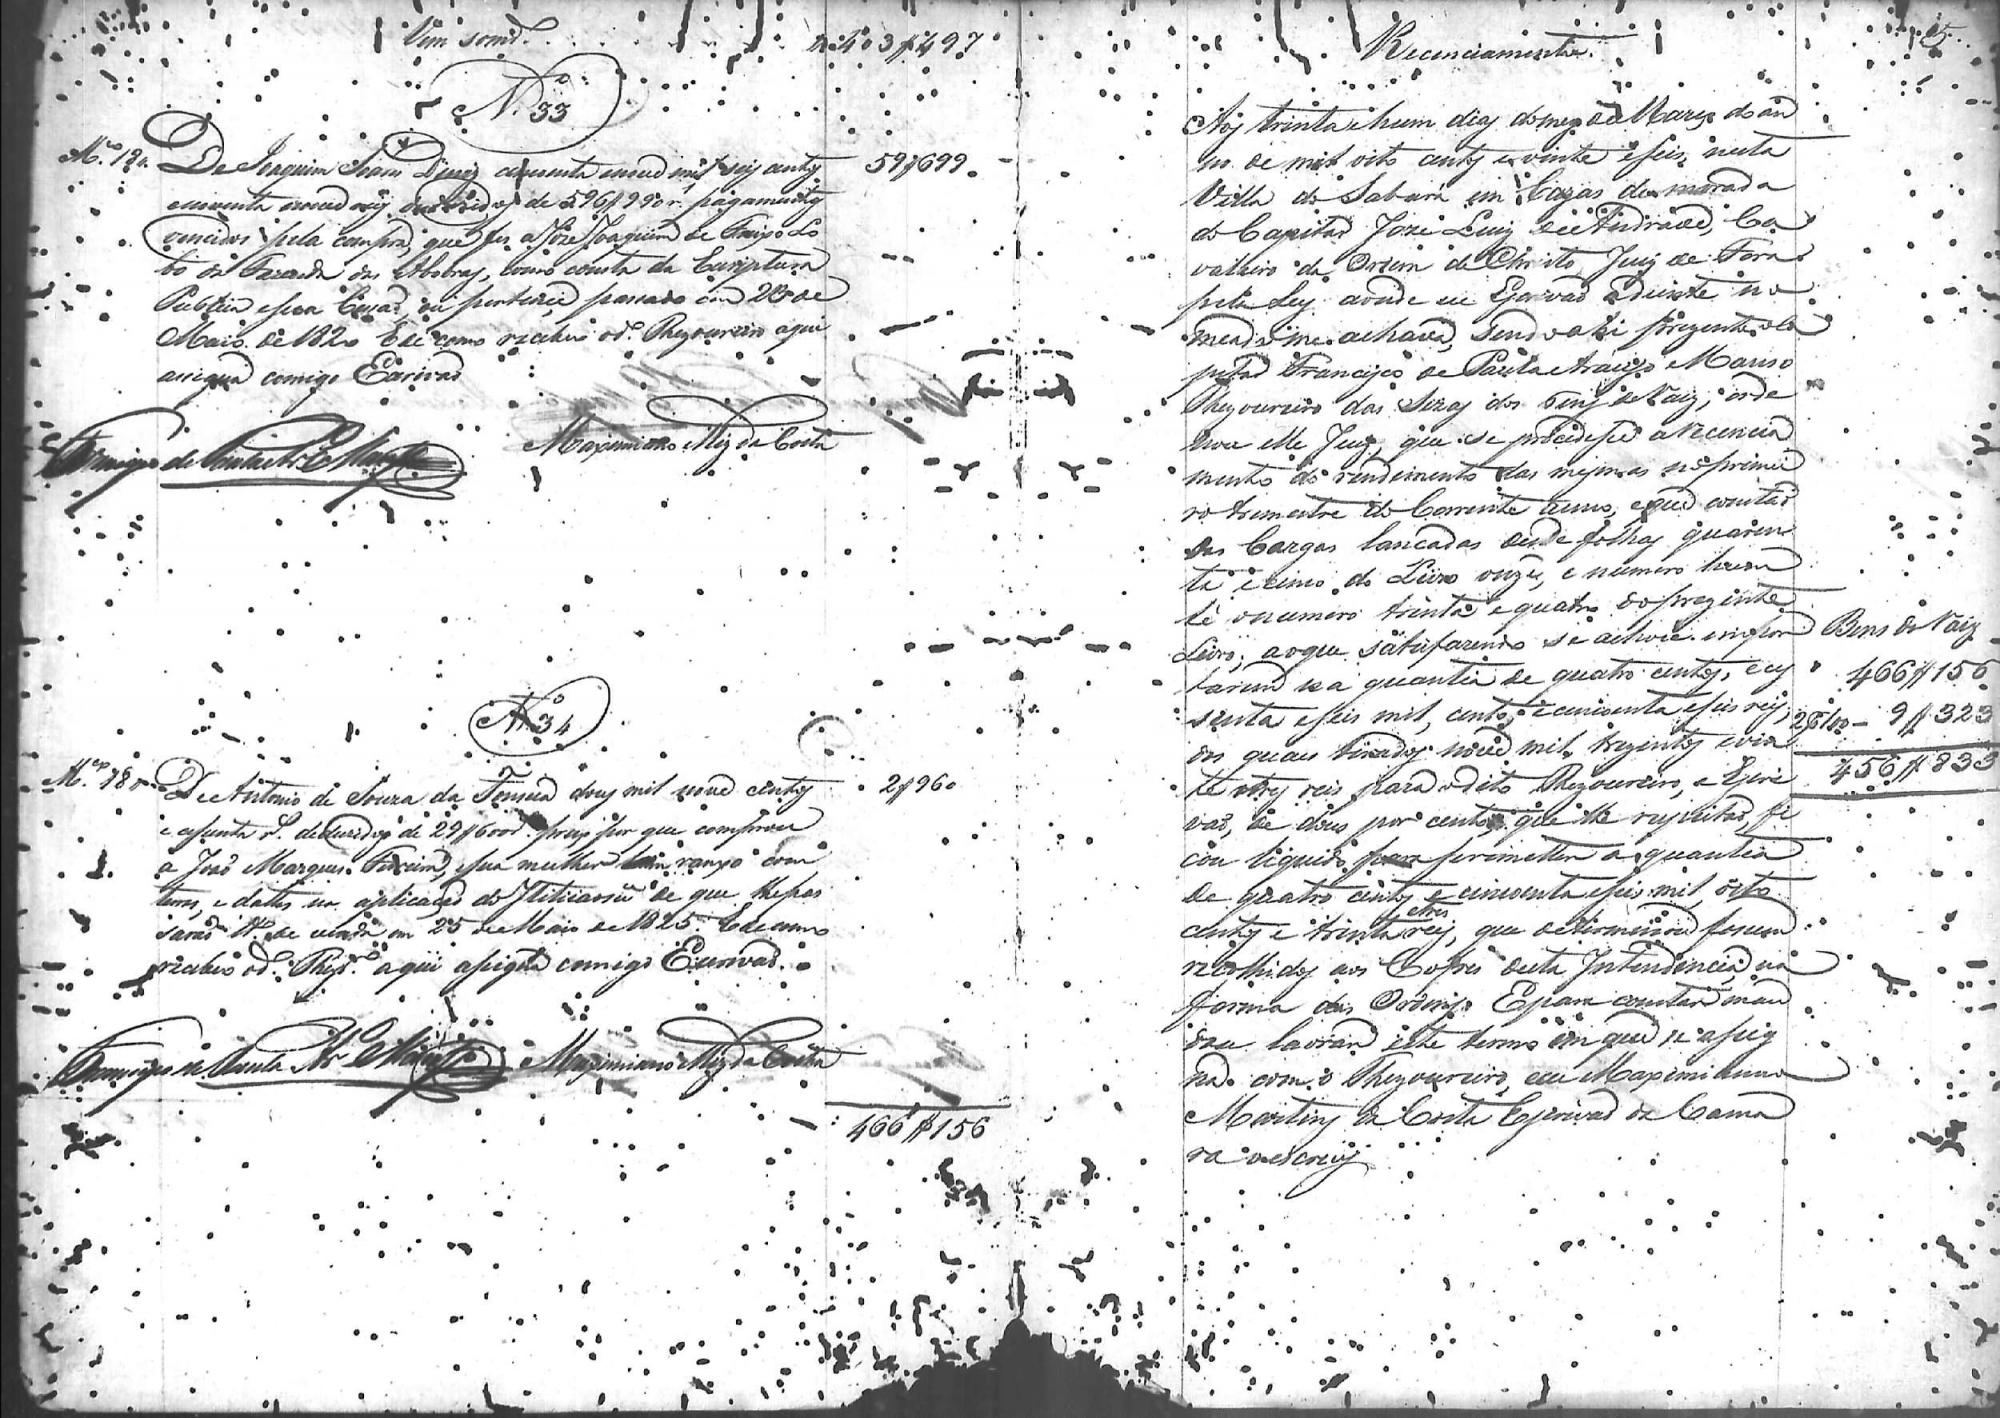 Vem somd.
403$497
N.º 33
M.ço 180. De Joaquim Soares Diniz cincoenta enove mil seis centos 59$699
enoventa enove reis de 596$990 r. pagamentos
vencidos pela compra, que fes a Joze Joaquim de
bo da Fazenda das Abobras, como consta da Escriptura
Publica passado em 28 de
Maio de 182 E de como recebeo o d.º Thezoureiro aqui
asigna comigo Escrivaõ
Maximiano Miz da Costa
N.º 34
M.ço 180 De Antonio de Souza da Fonseca dous mil nove centos 2$960
e cesenta r.s de 29$600 r. preço por que comprou
a Joaõ Marques Ferreira, esua mulher hum ranxo com
terras, e datas na aplicaçaõ do de que lhe pas
saraõ de venda em 25 de Maio de 1825. E de como
recebeo o d.º Thez.ro aqui asigna comigo Escrivaõ.
Maximiano Miz da Costa
466$156
5
Recenciamento.
Aos trinta ehum dias do mez de Março do an
no de mil oito centos e vinte eseis, nesta
Villa do Sabará em Cazas de morada
do Capitaõ Joze Luiz de Andrade, Ca
valeiro da Ordem de Christo Juiz de Fora
pela Ley aonde eu Escrivaõ adiante no
meado me achava, sendo ahi prezente o Ca
pitaõ Francisco de Paula Araujo e Mariso
Thezoureiro das Sizas dos bens de Raiz, orde
nou elle Juiz, que se procedese a recencia
mento do rendimento das mesmas no primei
ro trimestre do Corrente anno, e que contaõ
das Cargas lancadas desde folhas quaren
ta e cinco do Livro onze, e numero hum
té onumero trinta e quatro do prezente
Livro, aoque satisfazendo se achou impor
tarem na quantia de quatro centos, e ces
senta eseis mil, cento, e cincoenta eseis reis,
dos quaes tirados nove mil, trezentos e vin
te etres reis para o dito Thezoureiro, e Escri
vaõ, de dous por cento que lhe respeitaõ, fi
cou liquido para serimetter a quantia
de quatro centos e cincoenta eseis mil, oito
centos e trinta etres reis, que determinou fosem
recolhidos aos Cofres desta Intendencia, na
forma das Ordens. E para constar man
dou lavrar este termo em que se asig
na com o Thezoureiro, eeu Maximiano
Martins da Costa Escrivaõ da Cama
ra oescrevy
Bens de Raiz
466$156
2 p/100 — 9$323
456$833